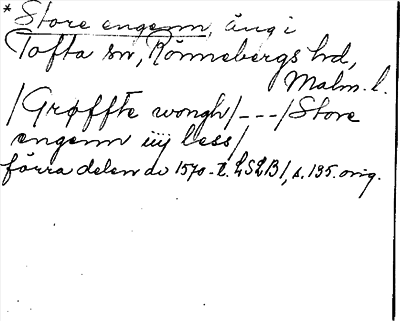 * Store engenn, äng i
Tofta sn, Rönnebergs hd,
Malm. l.
/Grøffte wongh/---/Store
engenn iiij less/
förra delen av 1570-t. LSLB1, s. 195. orig.